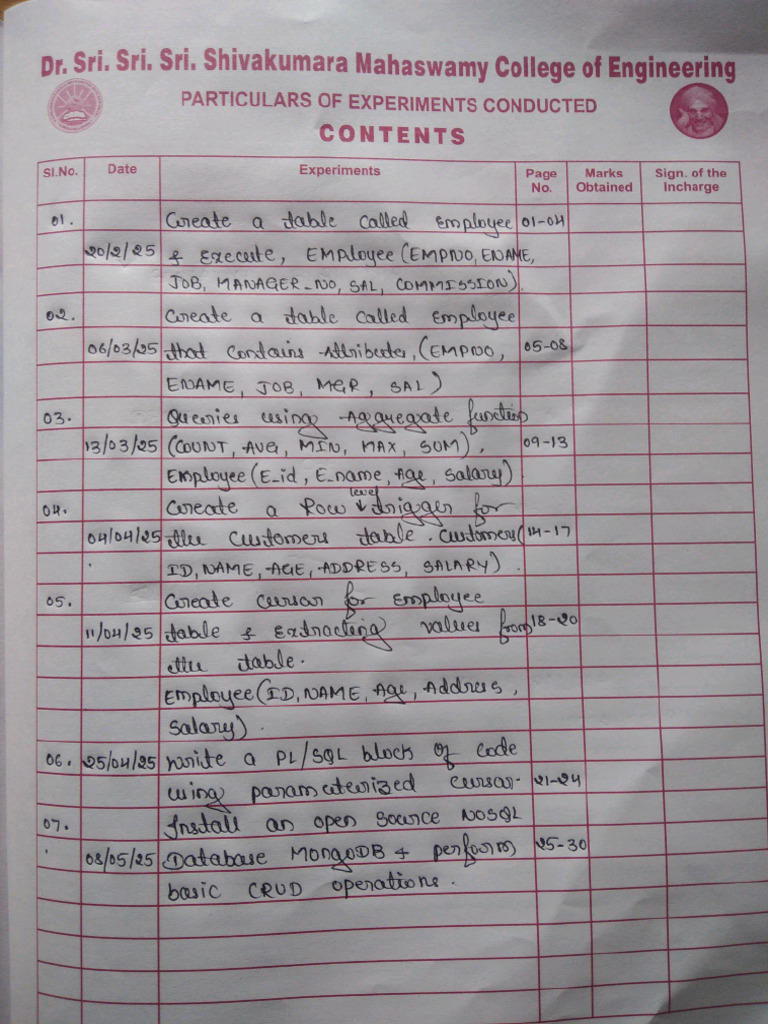 Dr. Sri. Sri. Sri. Shivakumara Mahaswamy College of Engineering
PARTICULARS OF EXPERIMENTS CONDUCTED
CONTENTS
Sl.No. Date Experiments Page No. Marks Obtained Sign. of the Incharge
01. Create a table called Employee 01-04
20/2/25 & Execute, EMPloyee (EMPNO, ENAME,
JOB, MANAGER_NO, SAL, COMMISSION).
02. Create a table called Employee
06/03/25 that contains Attributes, (EMPNO, 05-08
ENAME, JOB, MGR, SAL)
03. Queries using Aggregate function
13/03/25 (COUNT, AVG, MIN, MAX, SUM), 09-13
Employee (E_id, E_name, Age, Salary)
04. Create a Row level trigger for
04/04/25 the Customers table. Customers( 14-17
ID, NAME, AGE, ADDRESS, SALARY).
05. Create cursar for Employee
11/04/25 table & Extracting values from 18-20
the table.
Employee (ID, NAME, Age, Address,
Salary).
06. 25/04/25 write a PL/SQL block of code
using parameterized cursar. 21-24
07. Install an open source NOSQL
08/05/25 Database MongoDB & perform 25-30
basic CRUD operations.